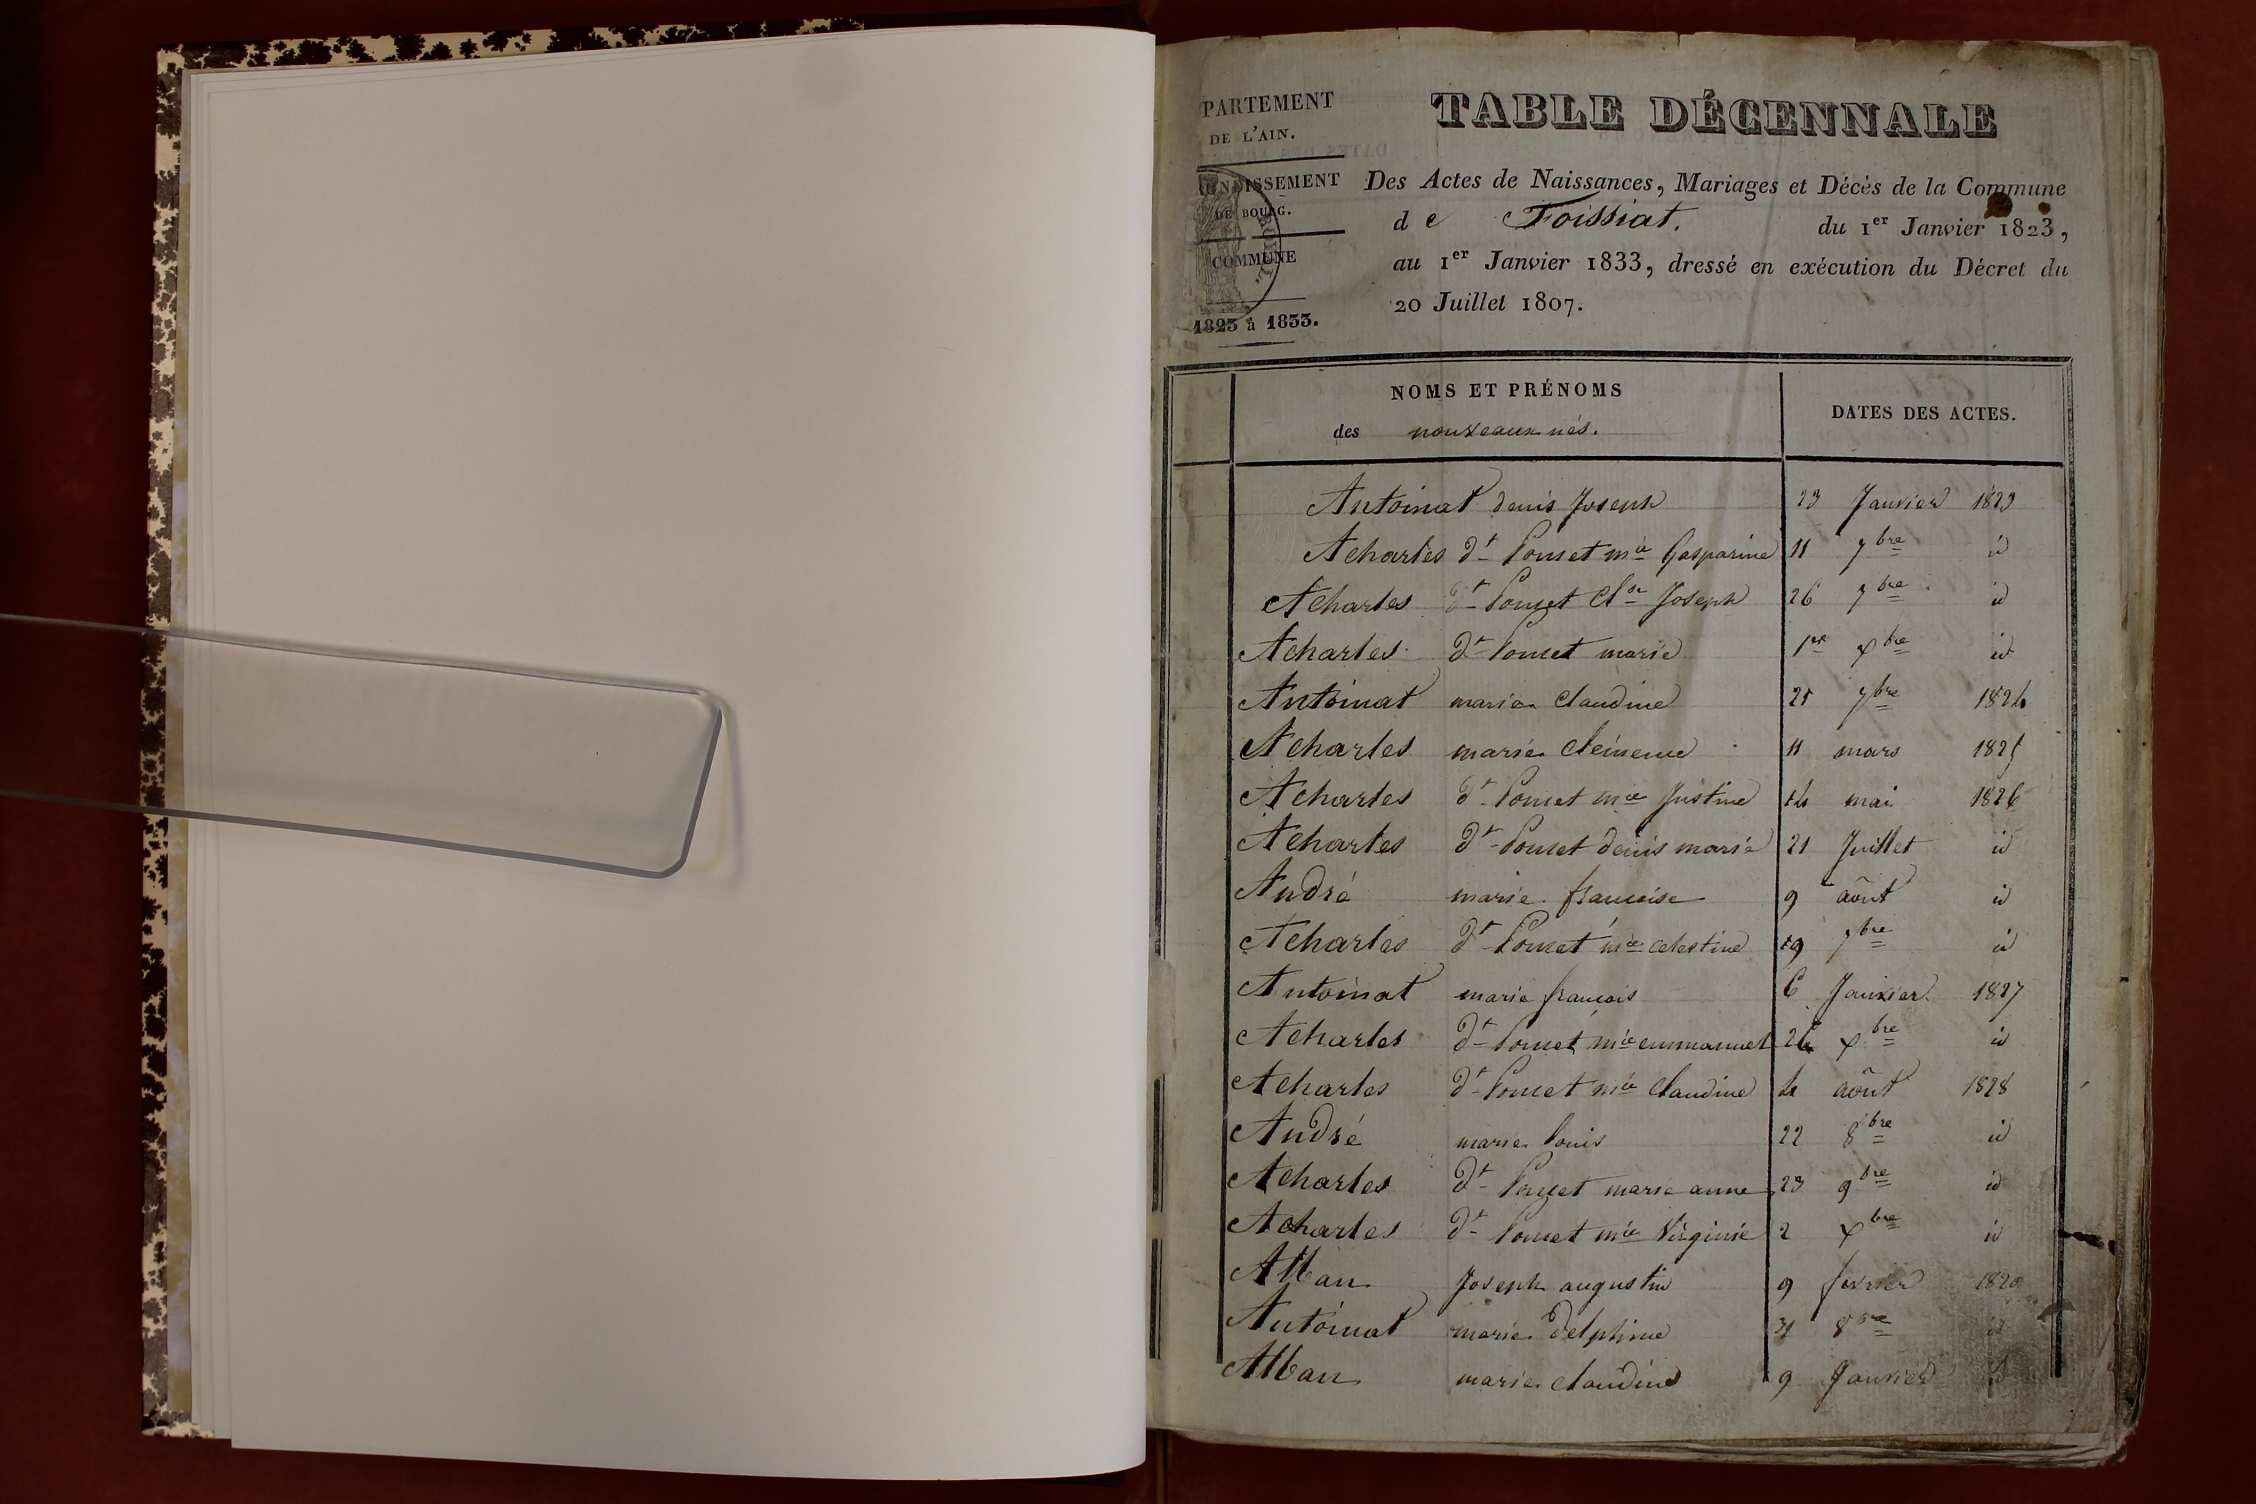 PARTEMENT
DE L'AIN.
ONDISSEMENT
DE BOURG.
COMMUNE
1823 à 1833.
TABLE DÉCENNALE
Des Actes de Naissances, Mariages et Décès de la Commune
de Foissiat. du 1er Janvier 1823,
au 1er Janvier 1833, dressé en exécution du Décret du
20 Juillet 1807.
NOMS ET PRÉNOMS
des nouveaux nés.
DATES DES ACTES.
Antoinat denis Joseph 23 Janvier 1823
Acharles dt Poncet mie Gasparine 11 7bre id
Acharles dt Poncet Joseph 26 7bre id
Acharles dt Poncet marie 1er xbre id
Antoinat marie Claudine 25 7bre 1824
Acharles marie Clémence 11 mars 1825
Acharles dt Poncet mie Justine 14 mai 1826
Acharles dt Poncet denis marie 21 Juillet id
André marie francoise 9 août id
Acharles dt Poncet mie celestine 19 7bre id
Antoinat marie francois 6 Janvier 1827
Acharles dt Poncet mie emmanuel xbre id
Acharles dt Poncet mie Claudine 4 août 1828
André marie Louis 22 8bre id
Acharles dt Poncet marie anne 23 9bre id
Acharles dt Poncet mie Virginie 2 xbre id
Alban Joseph augustin 9 fevrier
Antoinat marie Delphine 31 8bre id
Alban marie claudine 9 Janvier